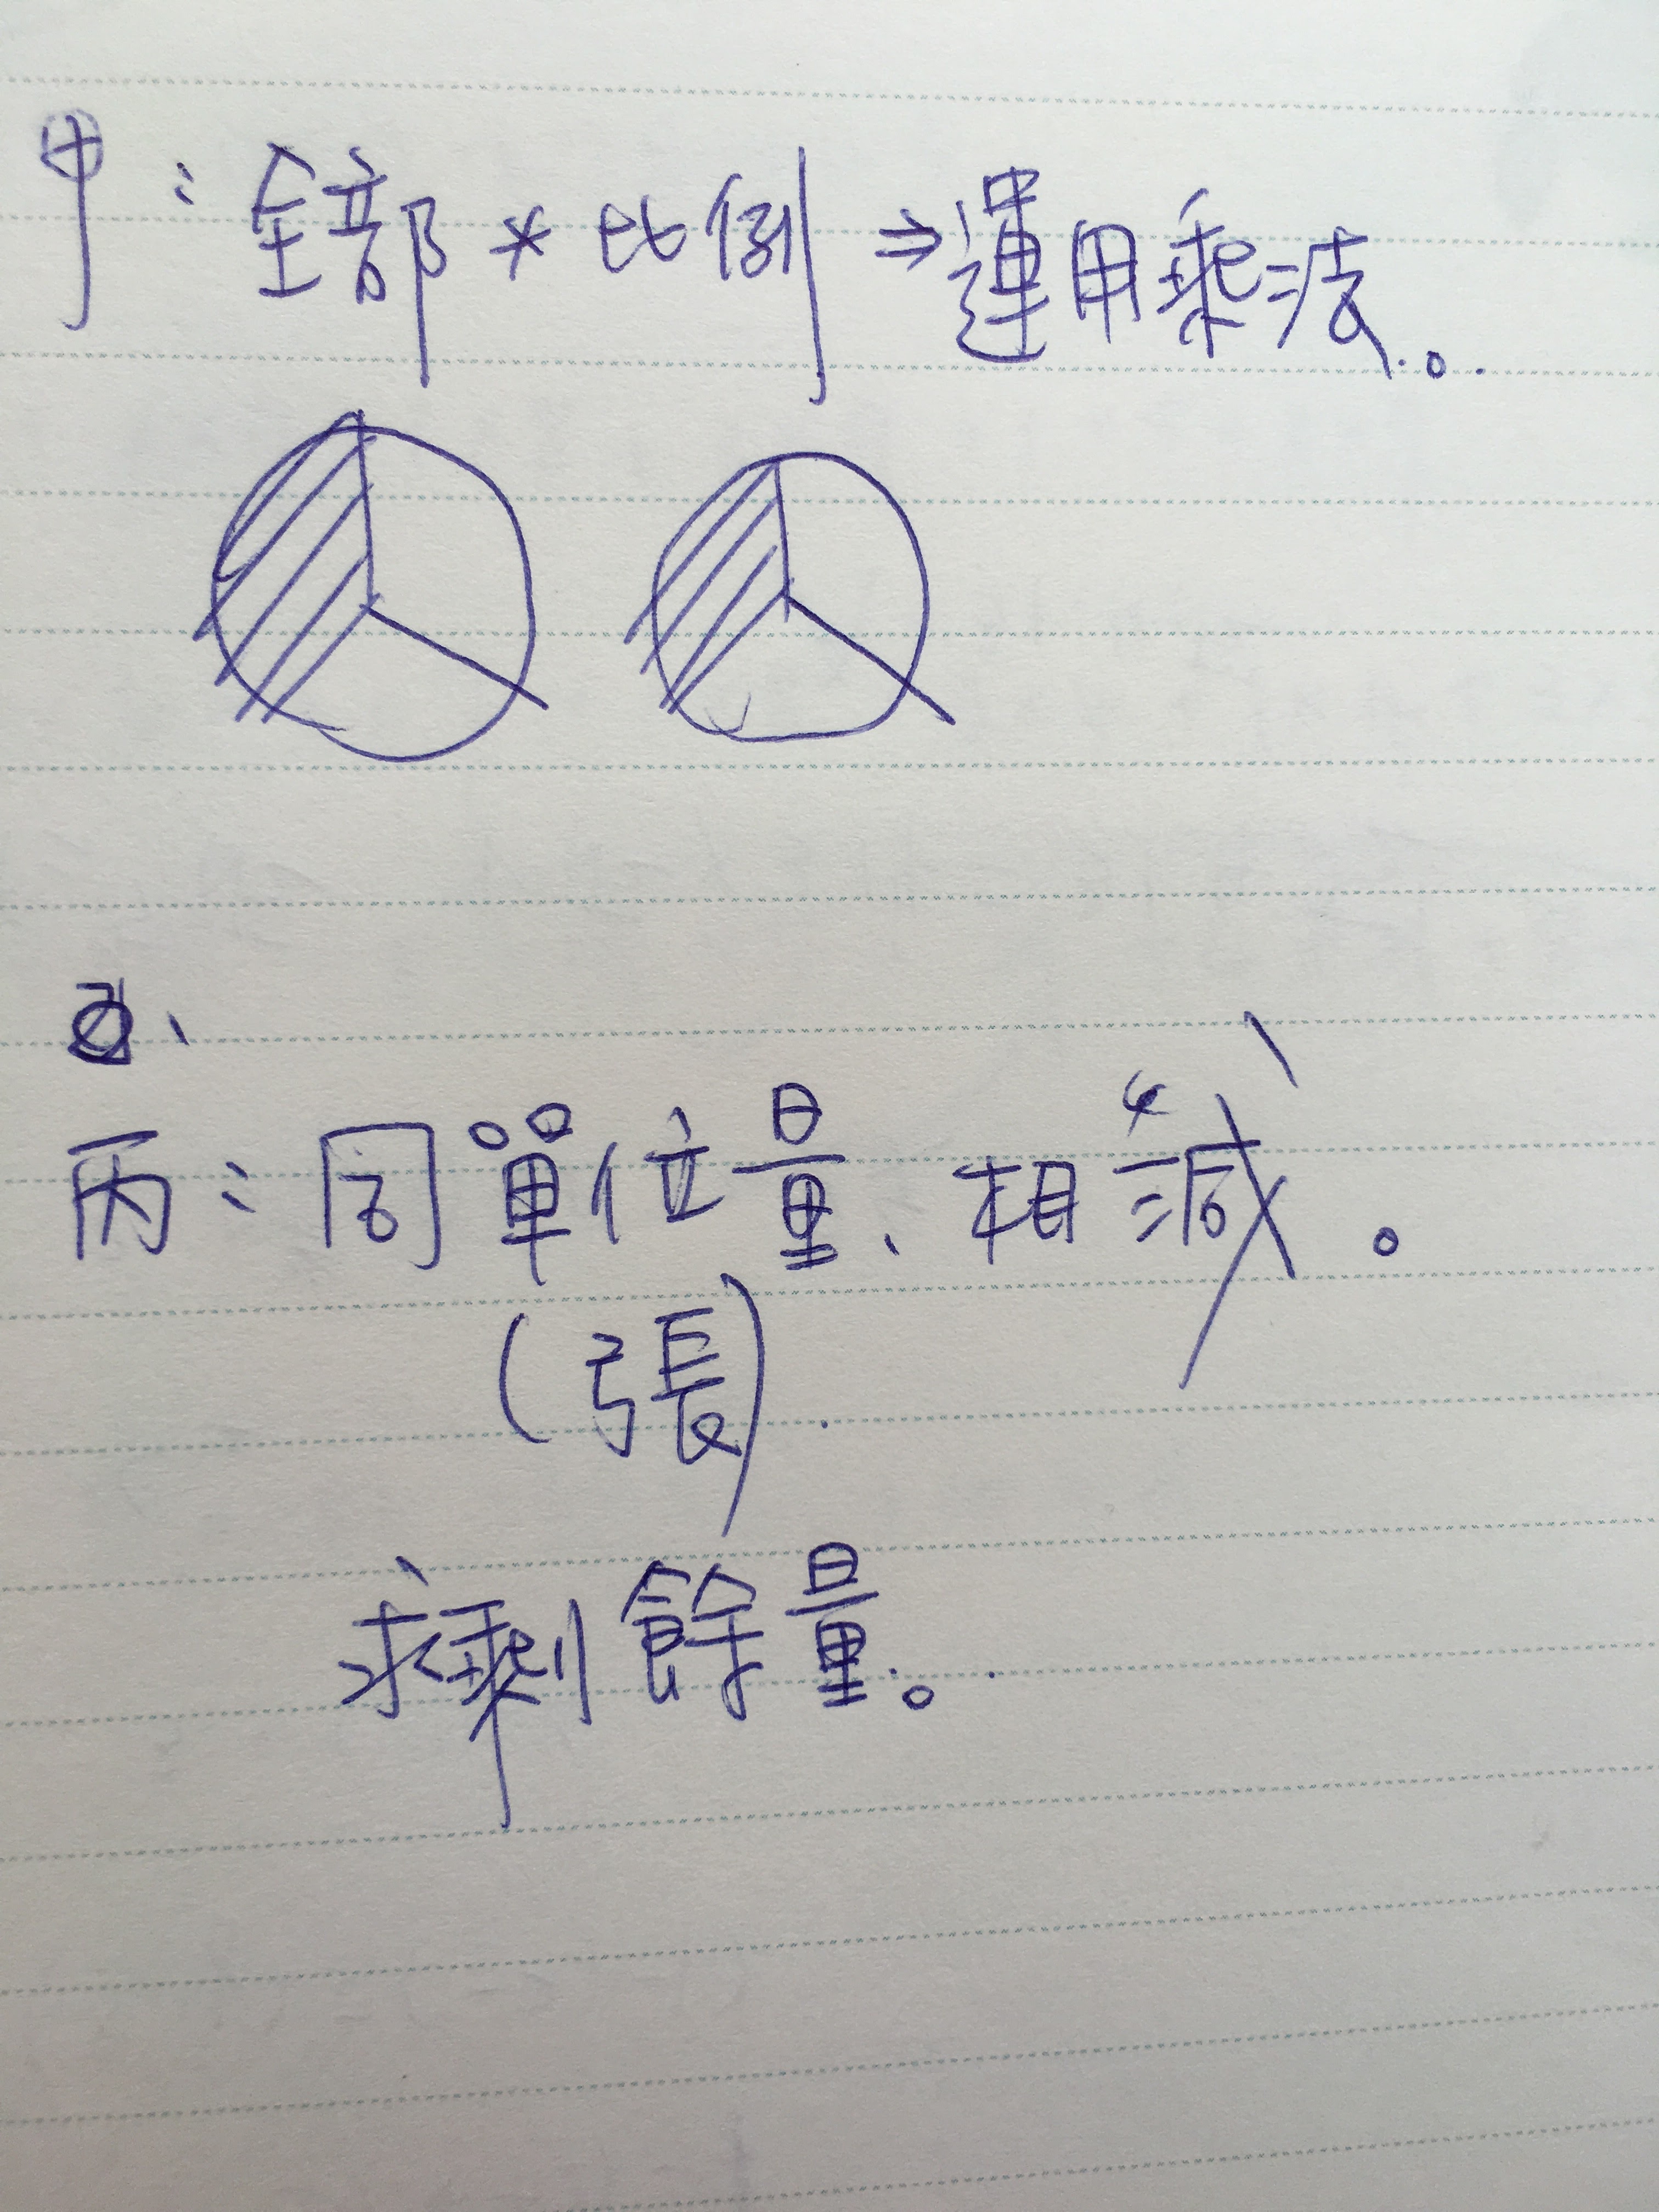 甲：全部*比例⇒運用乘法。
丙：同單位量、相減。
(張).
求剩餘量。